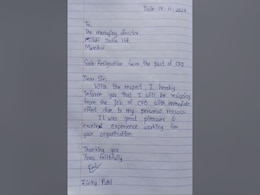 Date 14.11.2023
To,
The managing director
India Ltd
Mumbai
Sub: Resignation from the post of CFO
Dear Sir,
With due respect, I hereby
inform you that I will be resigning
from the job of CFO with immediate
effect due to my personal reason.
It was good pleasure &
excellent experience working for
your organisation.
Thanking you
Yours faithfully
Patil